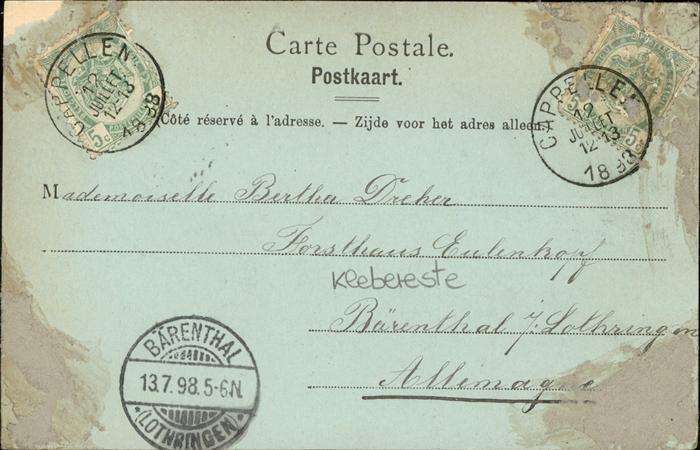 Carte Postale.
Postkaart.
(Côté réservé à l'adresse. — Zijde voor het adres alleen.)
CAPPELLEN
12
JUILLET
12-13
1898
CAPPELLEN
12
JUILLET
12-13
1898
Mademoiselle Bertha Dreher
Forsthaus Eulenkopf
Klebereste
Bärenthal i/ Lothringen
Allemagne
BÄRENTHAL
13.7.98.5-6N.
(LOTHRINGEN)